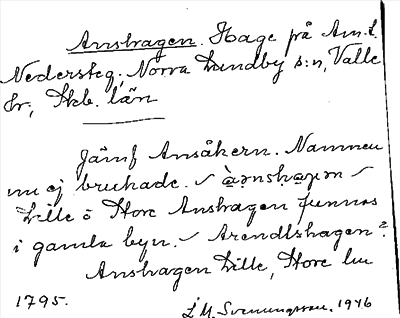 Anshagen. Hage på Am.t.
Nedersteg; Norra Lundby s:n, Valle
hr; Skb. län
Jämf Ansåkern. Namnen
nu ej brukade. ✓
Lille o Store Anshagen funnos
i gamla byn. ✓ Arendtshagen?
Anshagen Lille, Store lm
1795.
L. M. Svenungsson. 1946